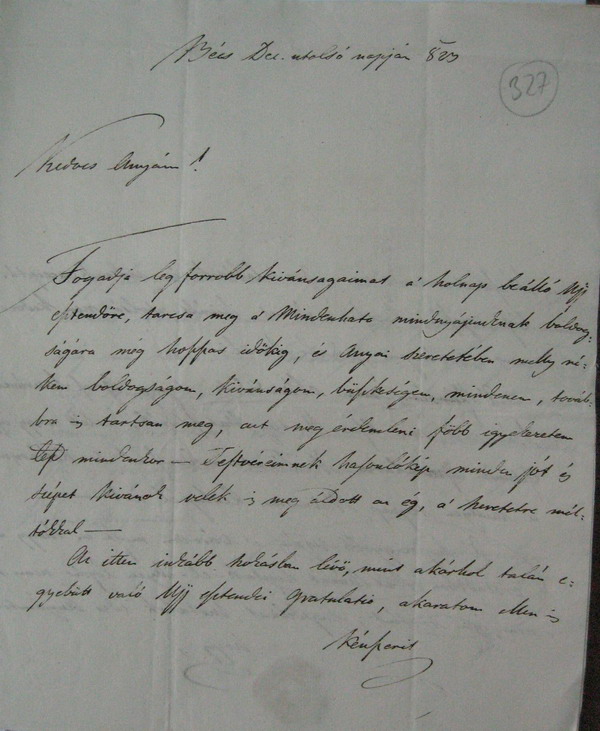 Bécs Dec. utolsó napján 823
327
Kedves Anyám!
Fogadja leg forrobb kivánsagaimat a' holnap beálló Ujj
esztendőre, tarcsa meg a' Mindenható mindnyájunknak boldog-
ságára még hoszszas időkig, és Anyai szeretetében melly né-
kem boldogságom, kivánságom, büszkeségem, mindenem, továb-
bra is tartson meg, ezt megérdemleni főbb igyekezetem
lesz mindenkor — Testvéreimnek hasonlókép minden jót és
szépet kivánok velek is meg áldott az ég, a' szeretetre mél-
tókkal —
Az itten inkább szokásban lévő, mint akárhol talán e-
gyebütt való Ujj esztendei Gratulatio, akaratom ellen is
kénszerit